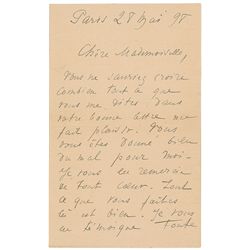 Paris 28 Mai 98
Chère Mademoiselle,
Vous ne sauriez croire
combien tout ce que
vous me dites dans
votre bonne lettre me
fait plaisir. Vous
vous êtes donné bien
du mal pour moi.
Je vous en remercie
de tout cœur. Tout
ce que vous faites
là est bien. Je vous
en témoigne toute